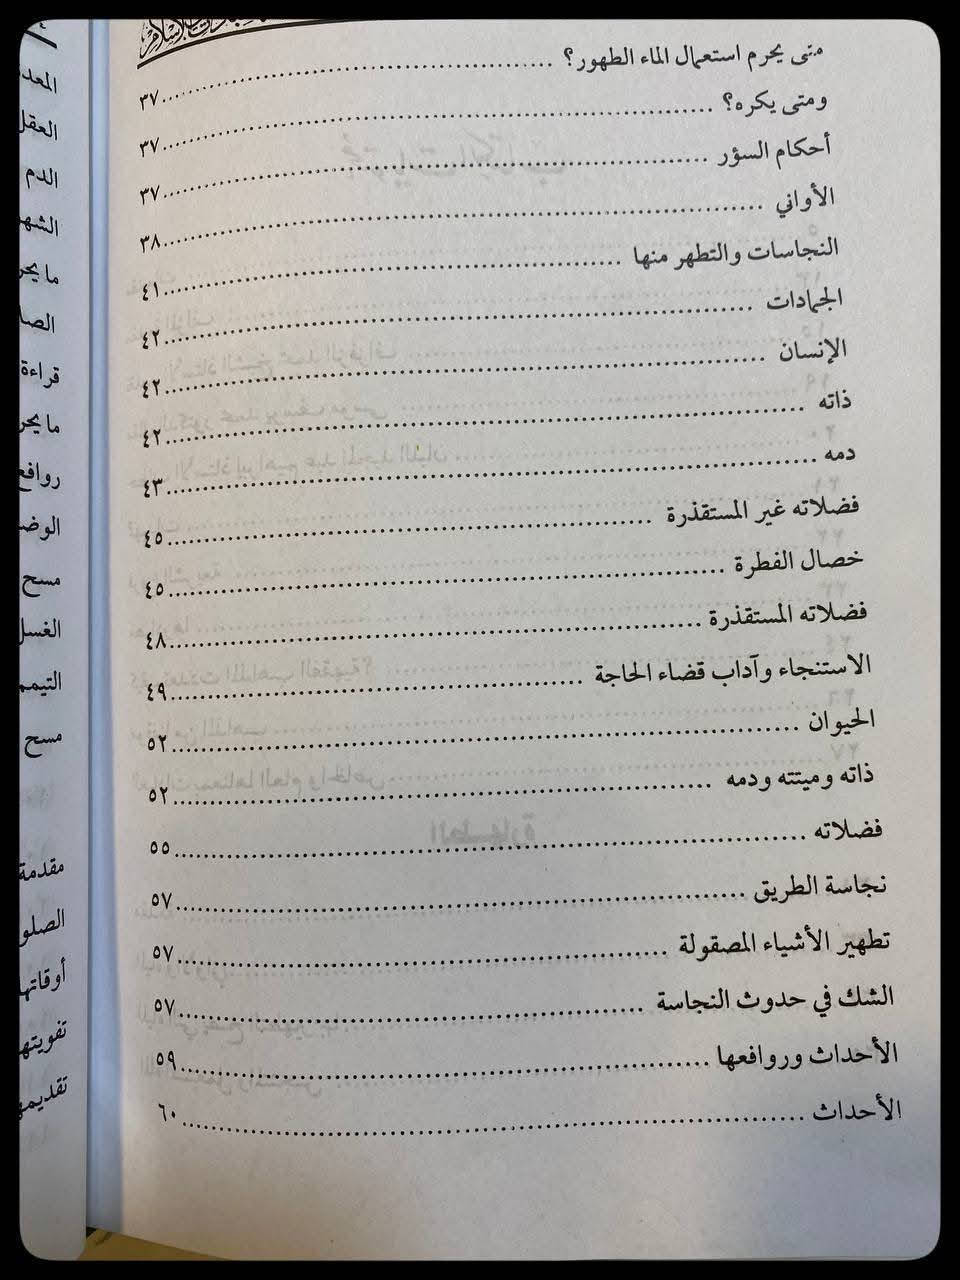 متى يحرم استعمال الماء الطهور؟ ........ ٣٧
ومتى يكره؟ ........ ٣٧
أحكام السؤر ........ ٣٧
الأواني ........ ٣٨
النجاسات والتطهر منها ........ ٤١
الجمادات ........ ٤٢
الإنسان ........ ٤٢
ذاته ........ ٤٢
دمه ........ ٤٣
فضلاته غير المستقذرة ........ ٤٥
خصال الفطرة ........ ٤٥
فضلاته المستقذرة ........ ٤٨
الاستنجاء وآداب قضاء الحاجة ........ ٤٩
الحيوان ........ ٥٢
ذاته وميتته ودمه ........ ٥٢
فضلاته ........ ٥٥
نجاسة الطريق ........ ٥٧
تطهير الأشياء المصقولة ........ ٥٧
الشك في حدوث النجاسة ........ ٥٧
الأحداث وروافعها ........ ٥٩
الأحداث ........ ٦٠
الدم
قراءة
الوضـ
مسح
الغسل
التيمم
مسح
مقدمة